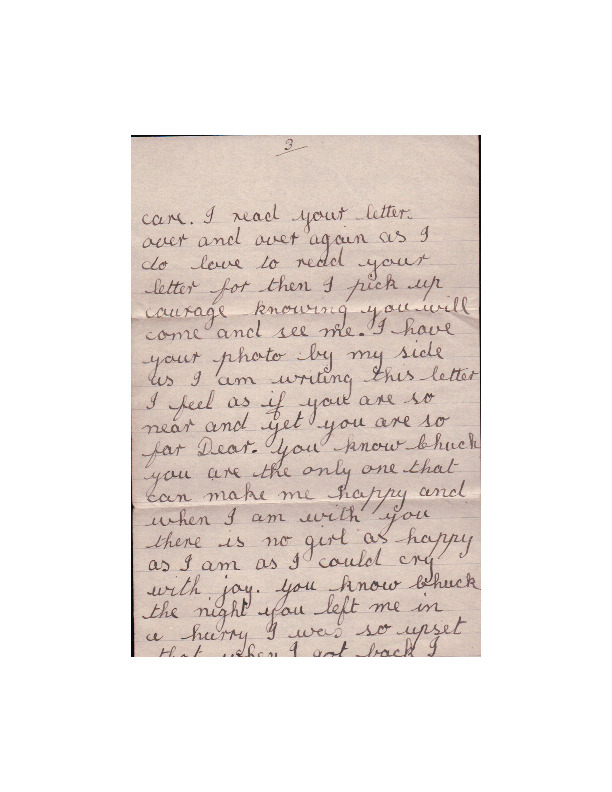 3
care. I read your letter.
over and over again as I
do love to read your
letter for then I pick up
courage knowing you will
come and see me. I have
your photo by my side
as I am writing this letter
I feel as if you are so
near and yet you are so
far Dear. you know Chuck
you are the only one that
can make me happy and
when I am with you
there is no girl as happy
as I am as I could cry
with joy. you know Chuck
the night you left me in
a hurry I was so upset
that when I got back I